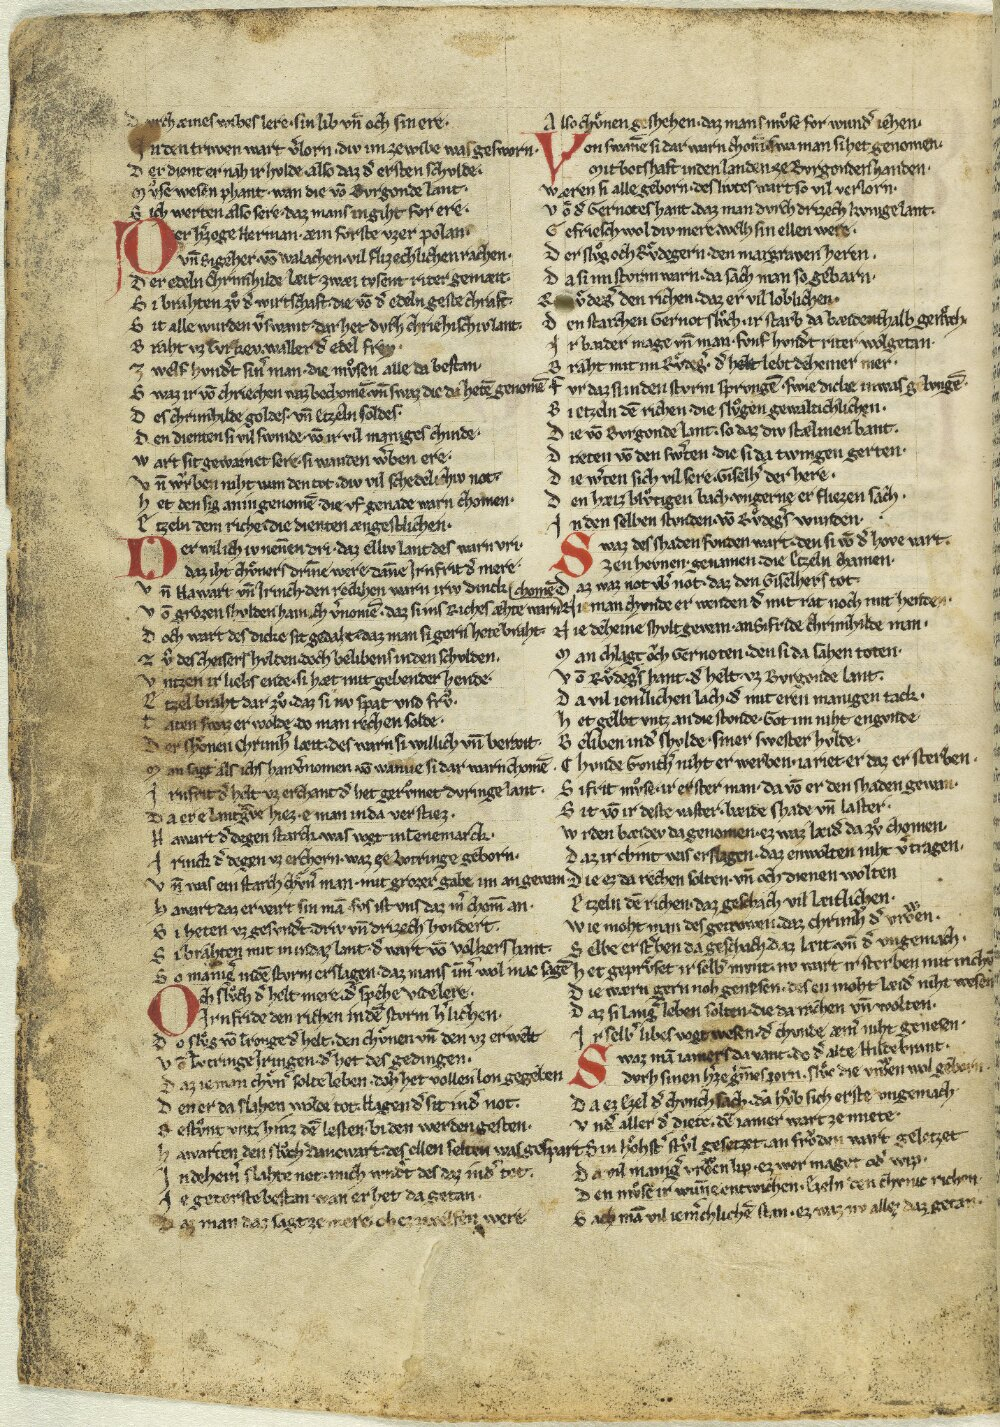 Durch æines wibes lere · sin lib vn̄ och sin ere ·
In den triwen wart v̓lorn · div im ze wibe was gesworn ·
Der dient er nah ir hvlde · also daz d̓ ersten schvlde ·
Mv̊se wesen phant · wan die vō Bvrgonde lant ·
Sich werten also sere · daz mans in giht for ere ·
Der h̓zoge Herman · æin forste vzer polan ·
Vn̄ Sigeher · vō walachen · vil flizechlichen rachen ·
Der edeln Chrimhilde læit · zwei tvsent riter gemæit ·
Si brahten zv̊ d̓ wirtschaft · die vō d̓ edeln geste chraft ·
Sit alle wurden v̓swant · dar het dvrch chriehischiv lant ·
Braht vz tvrkey · walter d̓ edel
Zwelf hvnd̓t sin̓ man · die mv̊sen alle da bestan ·
Swaz ir vō chriechen waz bechomē · vn̄ swaz die da hetē genomē
Des chrimhilde goldes · vn̄ etzeln soldes ·
Den dienten si vil swinde · vō ir vil maniges chinde ·
Wart sit gewæinet sere · si wanden w̓ben ere ·
Vn̄ wrben niht wan den tot · div vil schedelichiv not ·
Het den sig an in genomē · die vf genade warn chomen ·
Etzeln dem riche · die dienten ængestlichen ·
Der wil ich iv nennen dri · daz elliv lant des warn vri ·
Daz iht chv̊ners drinne were · danne Irnfrit d̓ mere ·
Vn̄ Hawart vn̄ Irinch · den recken warn irw dinch chomē
Vō grozen shvlden ham ch v̓nomē · daz si ins Riches æhte warn
Doch wart des dicke sit gedaht · daz man si gern hete braht ·
Zv̊ des cheisers hvlden · doch beliben si in den schvlden ·
Vntzen ir liebs ende · si hæt mit gebender hende
Etzel braht dar zv̊ · daz si nv spat vnd frv̊ ·
Taten swaz er wolde · do man rechen solde ·
Der shonen Chrimh̓ læit · des warn si willich vn̄ bereit ·
Man sagt als ichs han v̓nomen · vō wanne si dar warn chomē ·
Irnfrit d̓ helt vz erchant · d̓ het gerv̊met dvringe lant ·
Da er e lantgve hiez · e man in da verstiez ·
Hawart d̓ degen starch · was vogt in tenemarch ·
Irinch d̓ degen vz erchorn · waz ze Lotringe geborn ·
Vn̄ was ein starch chv̊n̓ man · mit grozer gabe im an gewan
Hawart daz er wart sin mā · svs ist vns daz m̓ chom an ·
Si heten vz gesvnd̓t · driv vn̄ drizech hondert ·
Si brahten mit in in daz lant · d̓ wart vō volkers hant ·
So manig in dē storm erslagen · daz mans im̄ wol mac sagē
Och slv̊ch d̓ helt mere · d̓ spehe videlere ·
Irnfride den richen in dē storm h̓lichen ·
Do slvg vō tronge d̓ helt · den chv̊nen vn̄ den vz erwelt
Vō Lotringe Iringen · d̓ het des gedingen ·
Daz ieman chv̊n̓ solte leben · doh het vollen lon gegeben
Den er da slahen wolde tot · Hagen d̓ sit in d̓ not ·
Gestv̊nt vntz hinz dē lesten · bi den werden gesten ·
Hawarten den slv̊ch danewart · des ellen selten was gespart
In dehein̓ slahte not · mich wnd̓t des daz in d̓ tot ·
Ie getorste bestan · wan er het da getan ·
Daz man daz sagt ze mere · ob ez zwelfen were
Also chv̊nen geshehen · daz mans mv̊se for wund̓ iehen ·
Von swane si dar warn chom̄ · swa man si het genomen ·
Mit botshaft in den landen · ze Bvrgonders handen ·
Weren si alle geborn · des livtes wart so vil verlorn ·
Vō d̓ Gernotes hant · daz man dvrch drizech kvnige lant ·
Gefriesch wol div mere · welh sin ellen were ·
Der slv̊g och Rv̊degern · den margraven heren ·
Da si im storm warn · da sach man so gebarn ·
Rv̊deg̓ den richen · daz er vil loblichen ·
Den starchen Gernot slv̊ch · ir starb da beidenthalb genv̊ch ·
Ir baider mage vn̄ man · fvnf hvnd̓t riter wolgetan ·
Braht mit im Rv̊deg̓ · d̓ helt lebt deheiner mer ·
Fvr daz si in den storm sprvngē · swie dicke in was gelvngē ·
Bi etzeln dē richen · die slv̊gen gewaltichlichen ·
Die vō Bvrgonde lant · so daz div stælinen bant ·
Dræten vō den sw̓ten · die si da twingen gerten ·
Die w̓ten sich vil sere · Giselh̓ der here ·
Den hæiz blv̊tigen bach · vngerne er fliezen sach ·
In den selben stvnden · vō Rv̊deg̓s wunden ·
Swaz des shaden fonden wart · den si vō d̓ hove vart ·
Ze n hevnen · genamen · die Etzeln chamen ·
Daz waz not vb̓ not · daz den Giselhers tot
Nieman chvnde er wenden · d̓ mit rat noch mit henden ·
Nie deheine sholt gewan · an Sifride Chrimhilde man ·
Man chlagt och Gernoten · den si da sahen toten ·
Vō Rv̊deg̓s hant · d̓ helt vz Bvrgonde lant ·
Da vil iem̓lichen lach · d̓ mit eren manigen tack ·
Het gelebt vntz an die stvnde · Got im niht engvnde
Beliben in d̓ shvlde · siner swester hvlde ·
Chvnde Gvnth niht er werben · ia riet er daz er sterben
Sifrit mv̊se · ir erster man · da vō er den shaden gewan ·
Sit vō ir deste vaster · beide shade vn̄ laster ·
Wrden bæidev da genomen · ez waz læid da zv̊ chomen
Daz ir chint was erslagen · daz enwolten niht v̓tragen ·
Die ez da rechen solten · vn̄ och dienen wolten
Etzeln dē richen · daz geschach vil leitlichen ·
Wie moht man des getrowen · daz chrimh̓ d̓ vrowen ·
Selbe ersterben da geschach · daz leit · vn̄ d̓ vngemach ·
Het geprv̊vet ir selb̓ mvnt · nv wart ir sterben mit in chv̄t
Die wærn gern noh genesen · des en moht læid̓ niht wesen
Daz si lang̓ leben solten · die da rechen vn̄ wolten ·
Ir selb̓ libes vogt wesen · d̓ chvnde æin̓ niht genesen ·
Swaz mā iamers da vant · do d̓ alte Hildebrant ·
Dvrh sinen hze gi̓mes zorn · slv̊c die vrowen wol geborn ·
Da ez Ezel d̓ chvnich sach · da hv̊b sich erste vngemach
Vnd̓ aller d̓ diete · dē iamer wart ze miete ·
Sin hohst̓ stv̊l gesetzet · an frv̊den wart geletzet
Da vil manig̓ vrowen lip · ez wer maget od̓ wip ·
Den mv̊se ir wunne entwichen · Ezeln den chvnic richen ·
Sach mā vil iem̓chlichē stan · ez waz nv allez daz getan ·